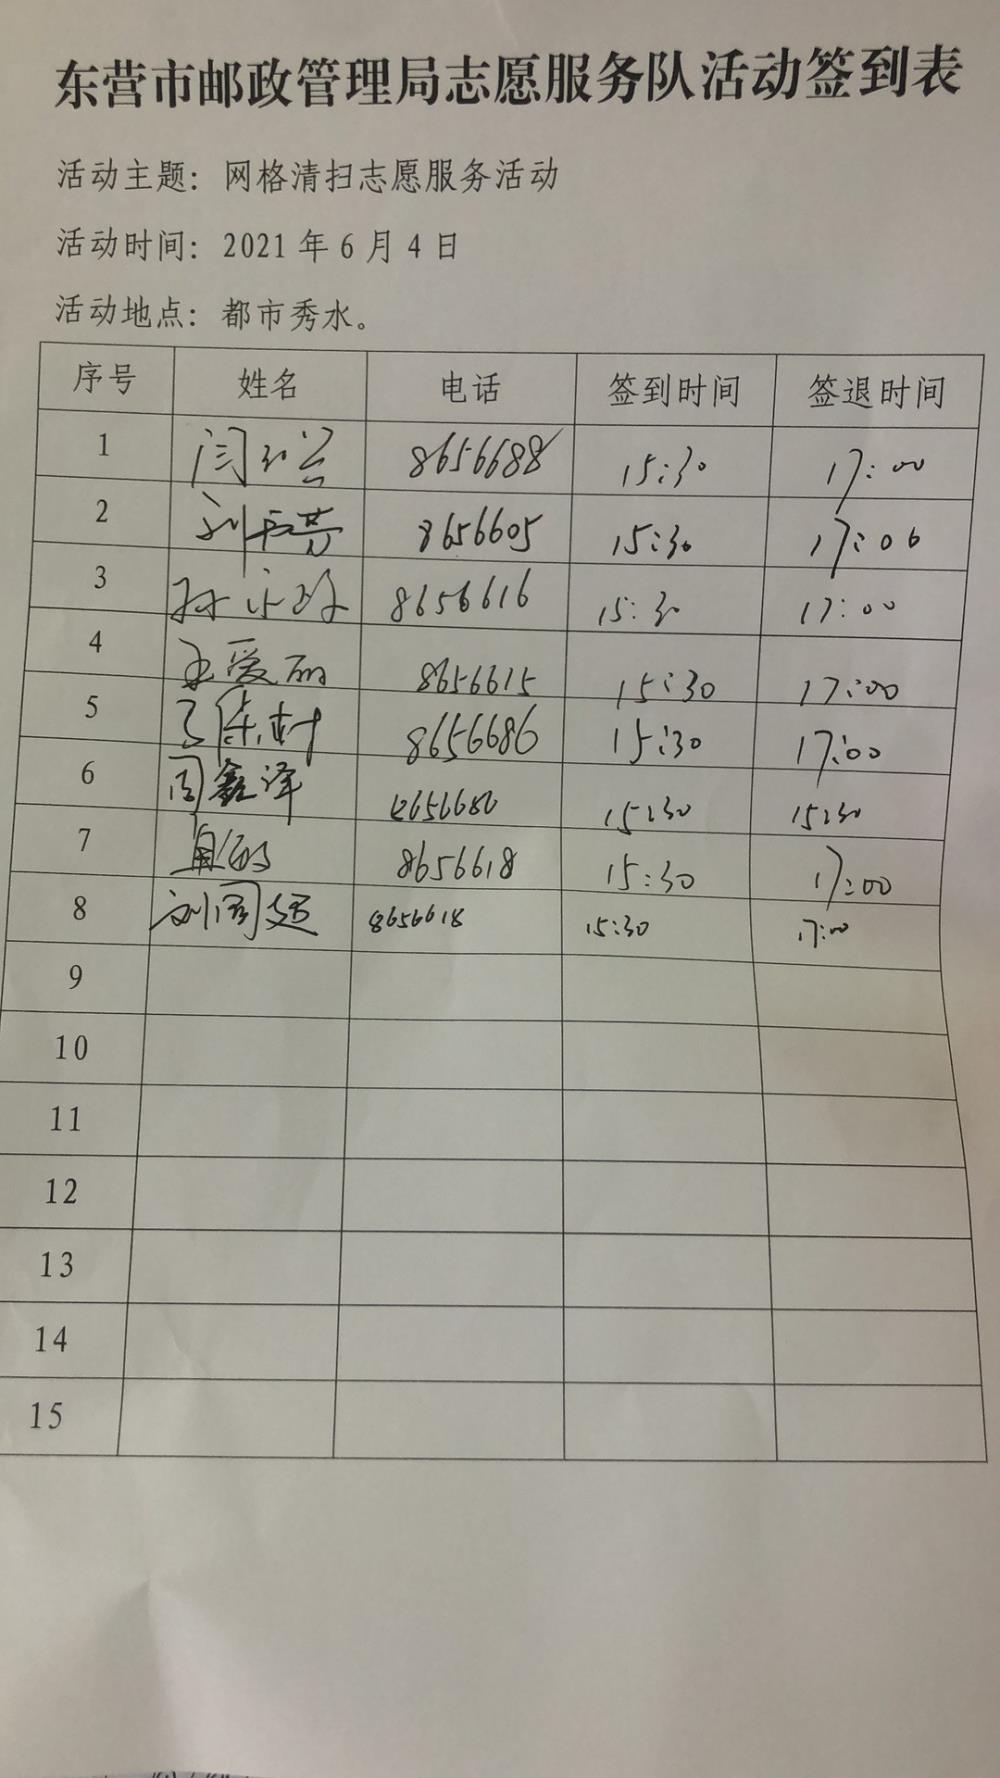 东营市邮政管理局志愿服务队活动签到表
活动主题：网格清扫志愿服务活动
活动时间：2021 年 6 月 4 日
活动地点：都市秀水。
序号 姓名 电话 签到时间 签退时间
1 8656688 15:30 17:00
2 8656605 15:30 17:00
3 8656616 15:30 17:00
4 王爱丽 8656615 15:30 17:00
5 8656686 15:30 17:00
6 周鑫泽 8656686 15:30 15:30
7 8656618 15:30 17:00
8 8656618 15:30 17:00
9
10
11
12
13
14
15